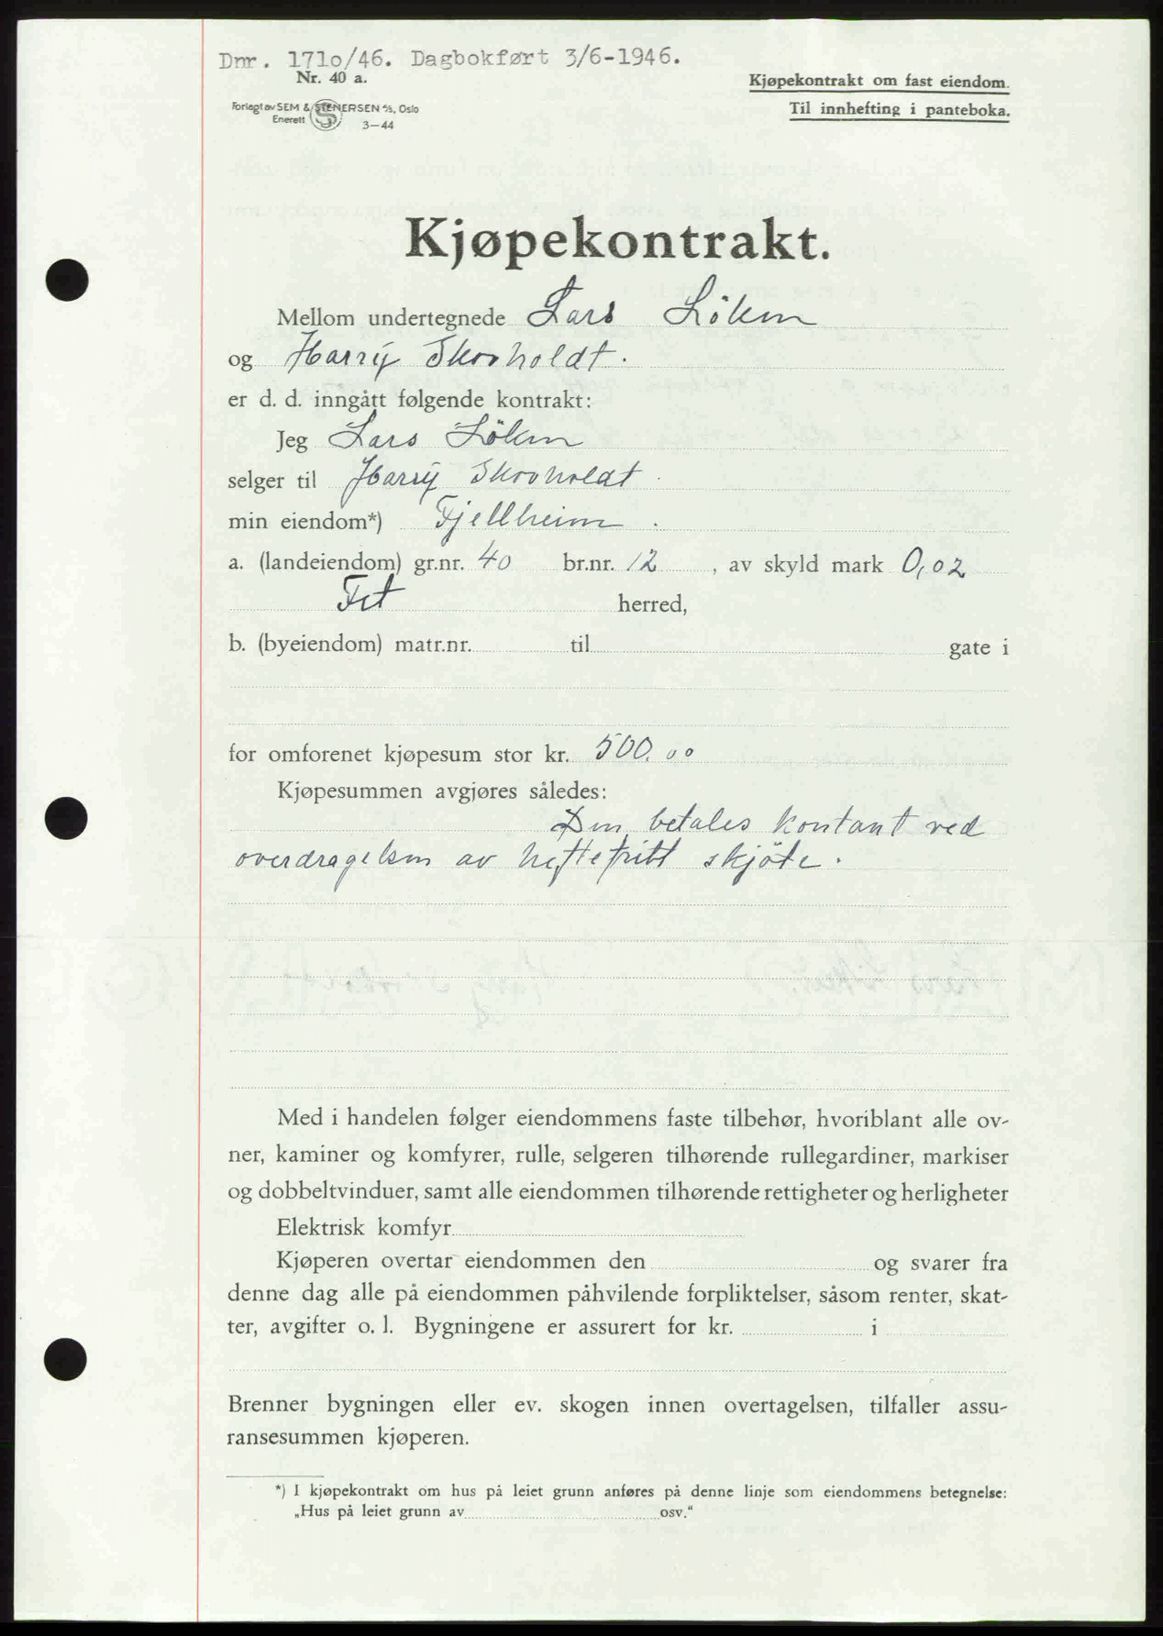 Dnr. 171o/46. Dagbokført 3/6-1946.
Nr. 40 a.
Kjøpekontrakt om fast eiendom.
Til innhefting i panteboka.
Forlagt av SEM & STENERSEN A/S, Oslo
Enerett 3-44
Kjøpekontrakt.
Mellom undertegnede Lars Löken
og Harry Skovholdt.
er d. d. inngått følgende kontrakt:
Jeg Lars Löken
selger til Harry Skovholdt.
min eiendom*) Fjellheim.
a. (landeiendom) gr.nr. 40 br.nr. 12, av skyld mark 0,02
Fet herred,
b. (byeiendom) matr.nr. til gate i
for omforenet kjøpesum stor kr. 500.00
Kjøpesummen avgjøres således:
Den betales kontant ved
overdragelsen av heftefritt skjöte.
Med i handelen følger eiendommens faste tilbehør, hvoriblant alle ov-
ner, kaminer og komfyrer, rulle, selgeren tilhørende rullegardiner, markiser
og dobbeltvinduer, samt alle eiendommen tilhørende rettigheter og herligheter
Elektrisk komfyr
Kjøperen overtar eiendommen den og svarer fra
denne dag alle på eiendommen påhvilende forpliktelser, såsom renter, skat-
ter, avgifter o. l. Bygningene er assurert for kr. i
Brenner bygningen eller ev. skogen innen overtagelsen, tilfaller assu-
ransesummen kjøperen.
*) I kjøpekontrakt om hus på leiet grunn anføres på denne linje som eiendommens betegnelse:
„Hus på leiet grunn av osv.“